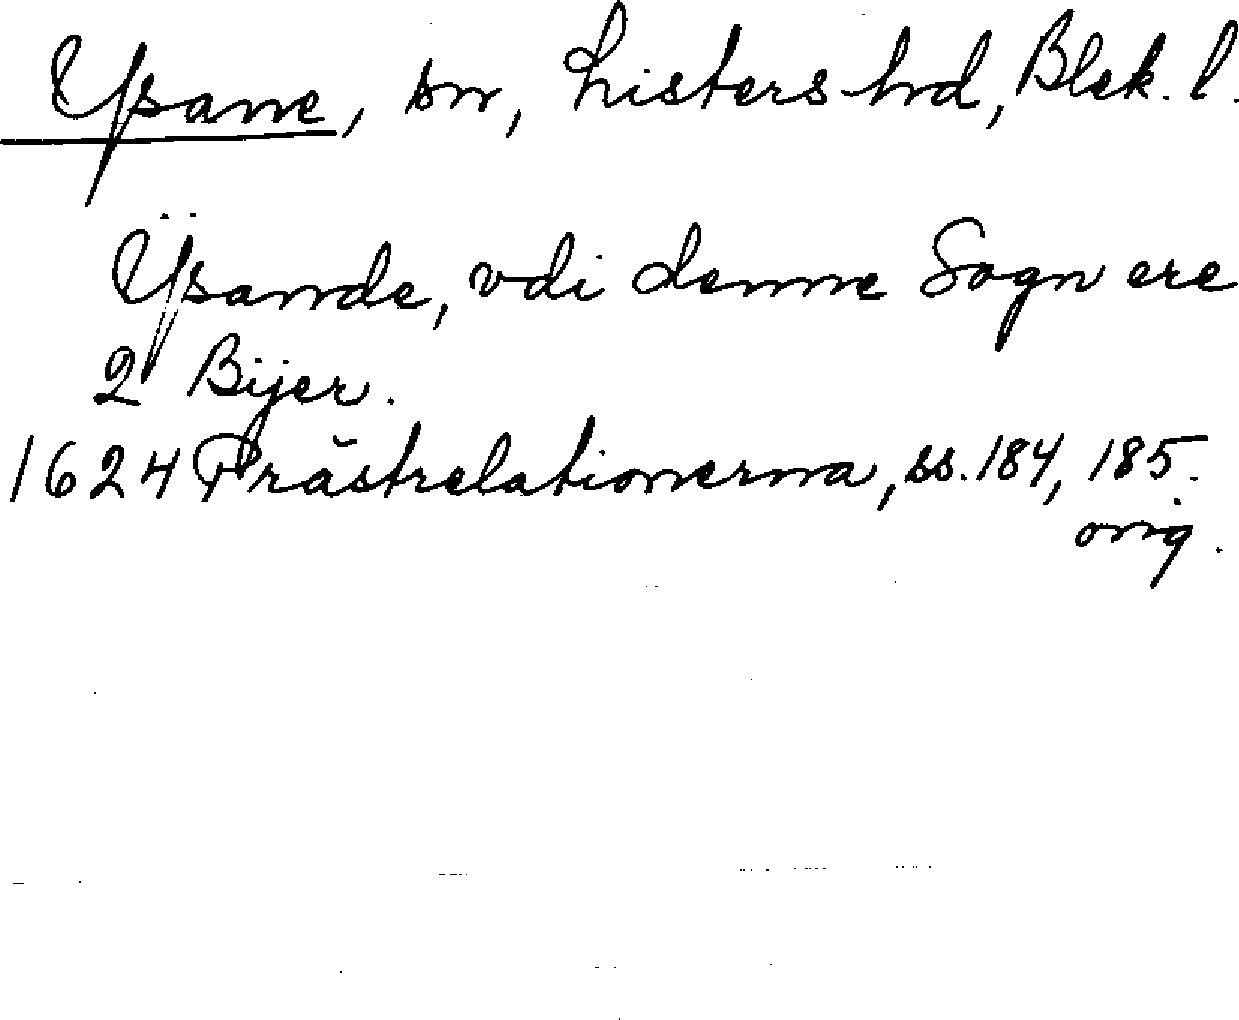 Ysane, sn, Listers hd, Blek. l.
Ÿsande, vdi denne Sogn ere
2 Bijer.
1624 Prästrelationerna, ss. 184, 185.
orig.